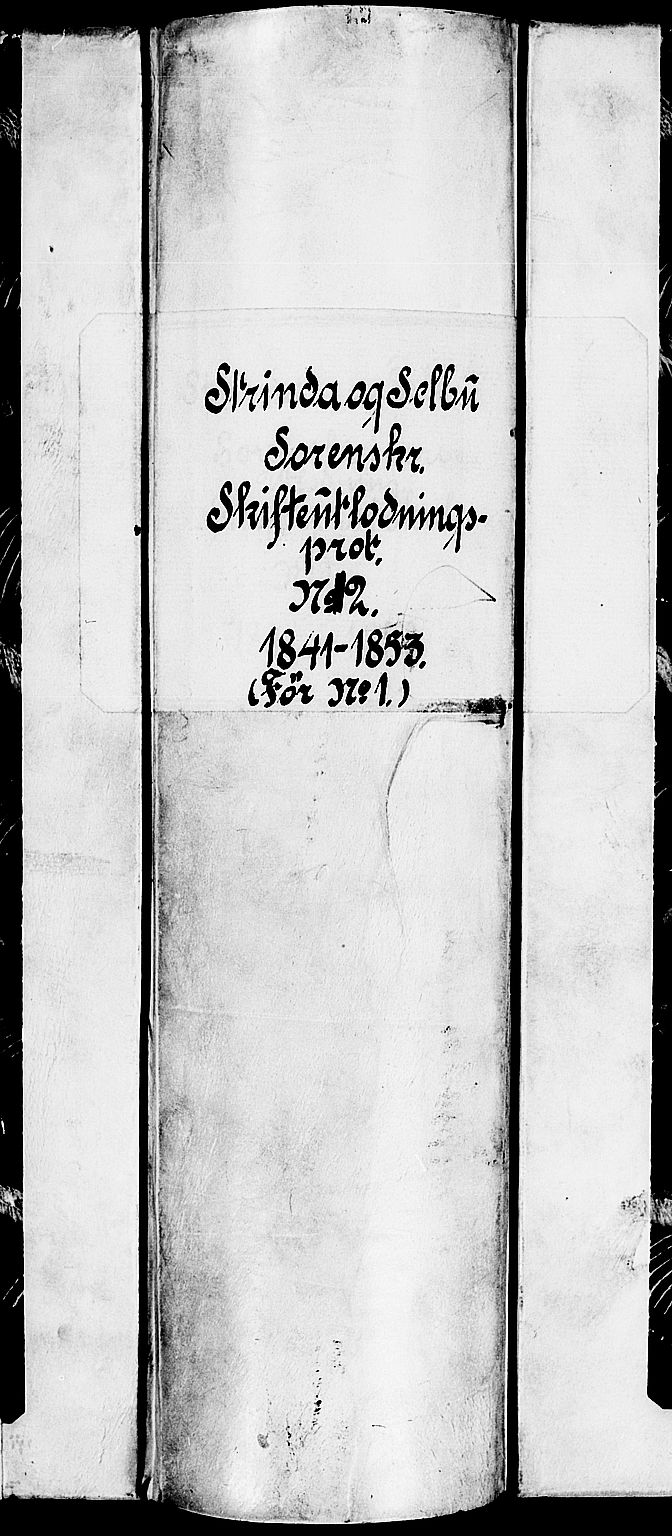 Strinda og Selbŭ
Sorenskr.
Skifteŭtlodnings-
prot.
No 2.
1841-1853.
(För No 1.)